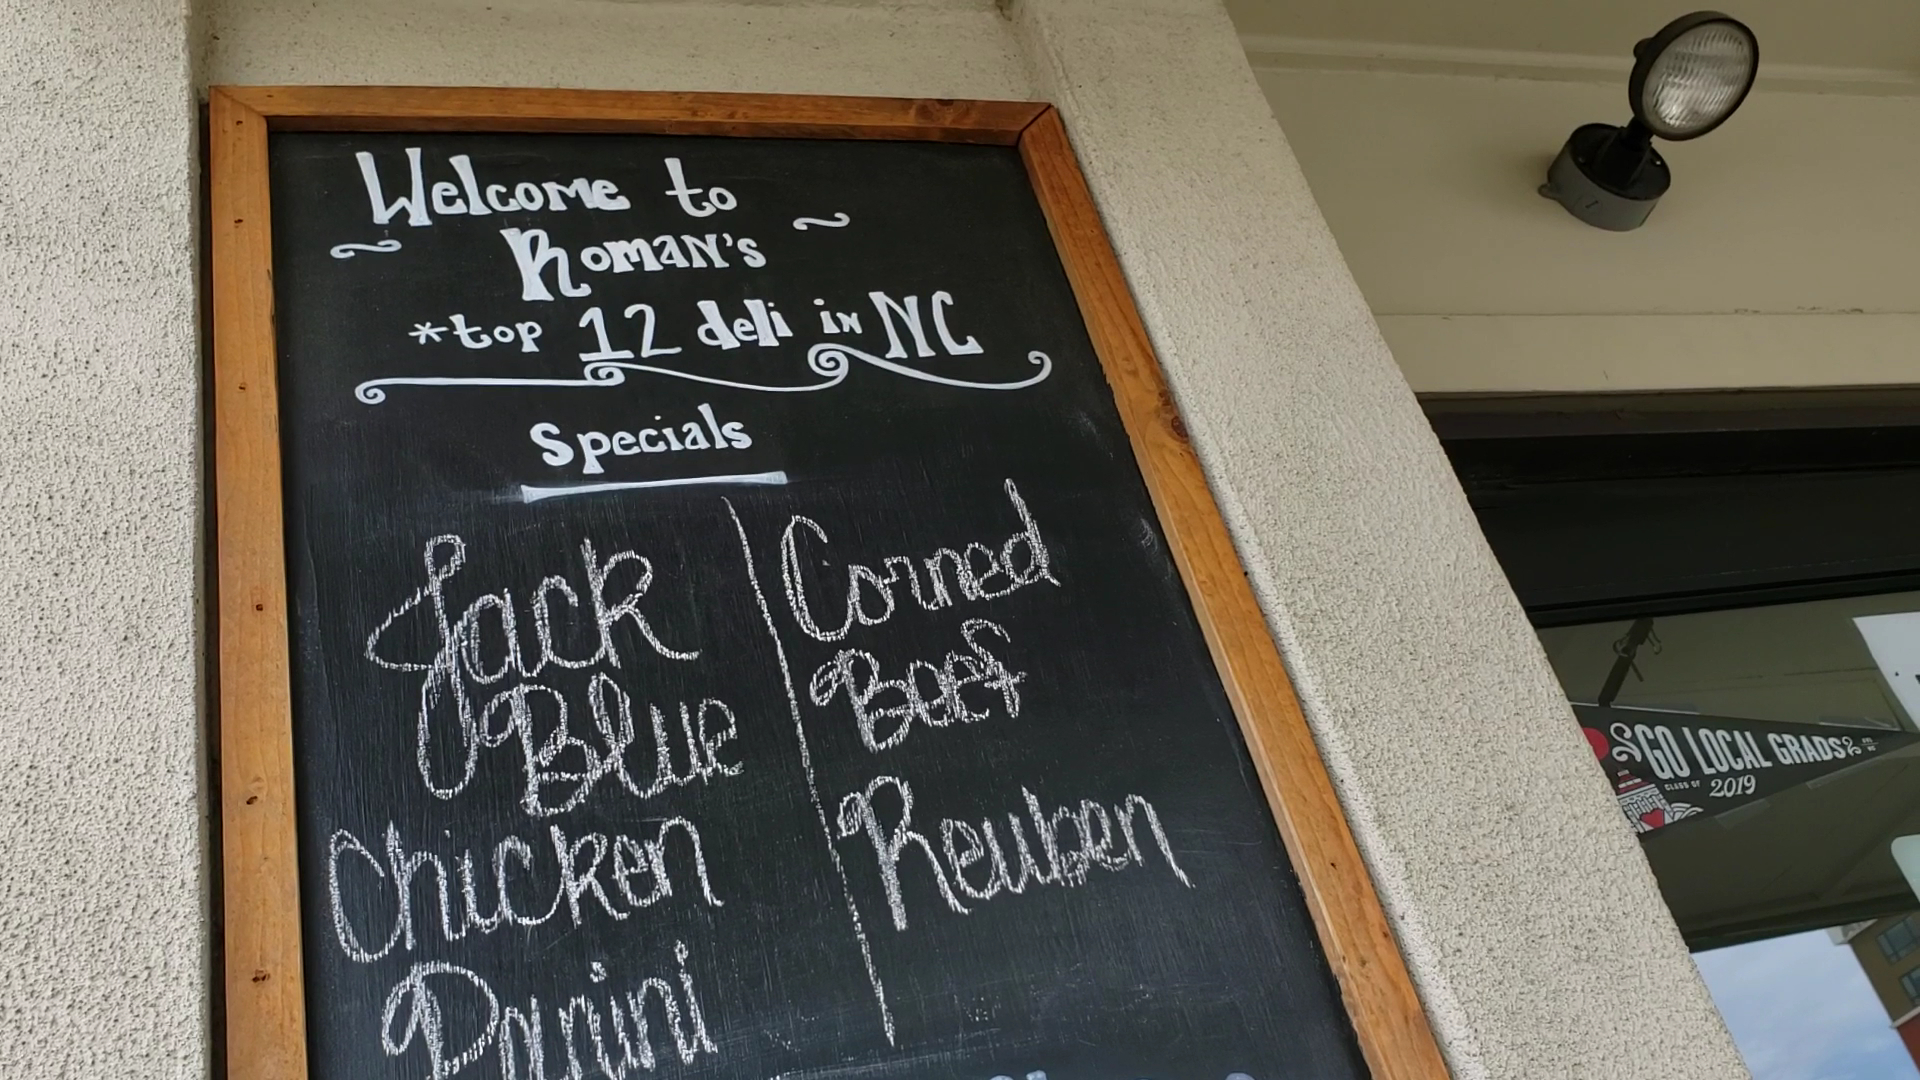 Welcome to
~ Roman's ~
*top 12 deli in NC
Specials
Jack
Blue
Chicken
Panini
Corned
Beef
Reuben
GO LOCAL GRADS
CLASS OF 2019